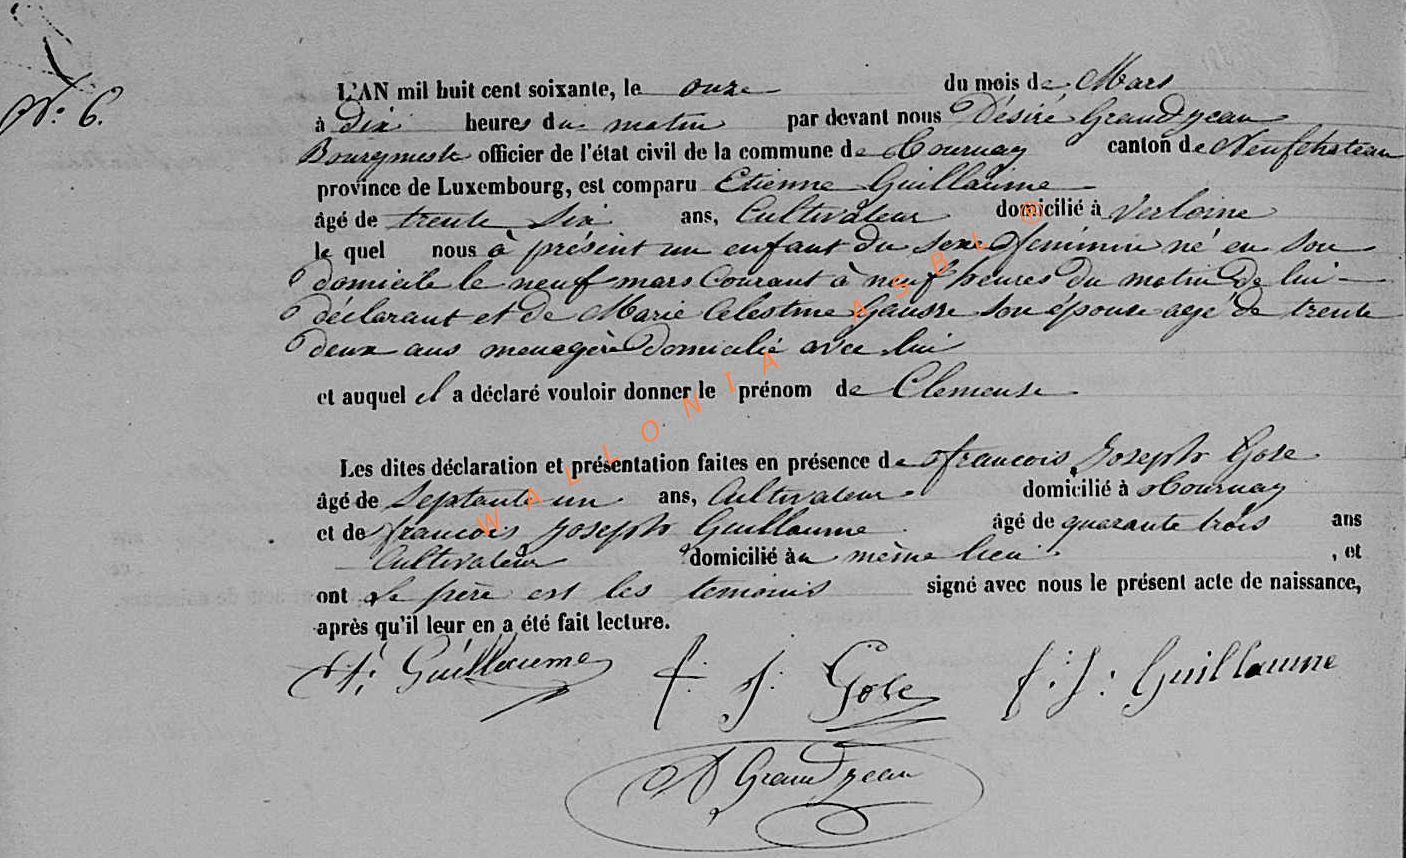 N.° 6.
L'AN mil huit cent soixante, le onze du mois de Mars
à dix heures du matin par devant nous Désiré Grandjean
Bourgmestre officier de l'état civil de la commune de Tournay canton de Neufchateau
province de Luxembourg, est comparu Etienne Guillaume
âgé de trente six ans, Cultivateur domicilié à Verlaine
le quel nous à présent un enfant du sexe feminin né en son
domicile le neuf mars Courant à neuf heures du matin de lui
déclarant et de Marie Celestine Gausse son épouse agé de trente
deux ans menagère domicilié avec lui
et auquel il a déclaré vouloir donner le prénom de Clemense
Les dites déclaration et présentation faites en présence de francois Joseph Gose
âgé de septante un ans, Cultivateur domicilié à Tournay
et de francois joseph Guillaume âgé de quarante trois ans
Cultivateur domicilié au même lieu , et
ont le père est les temoins signé avec nous le présent acte de naissance,
après qu'il leur en a été fait lecture.
Guillaume f. J. Gose f. J. Guillaume
D Grandjean
WALLONIA ASBL ®